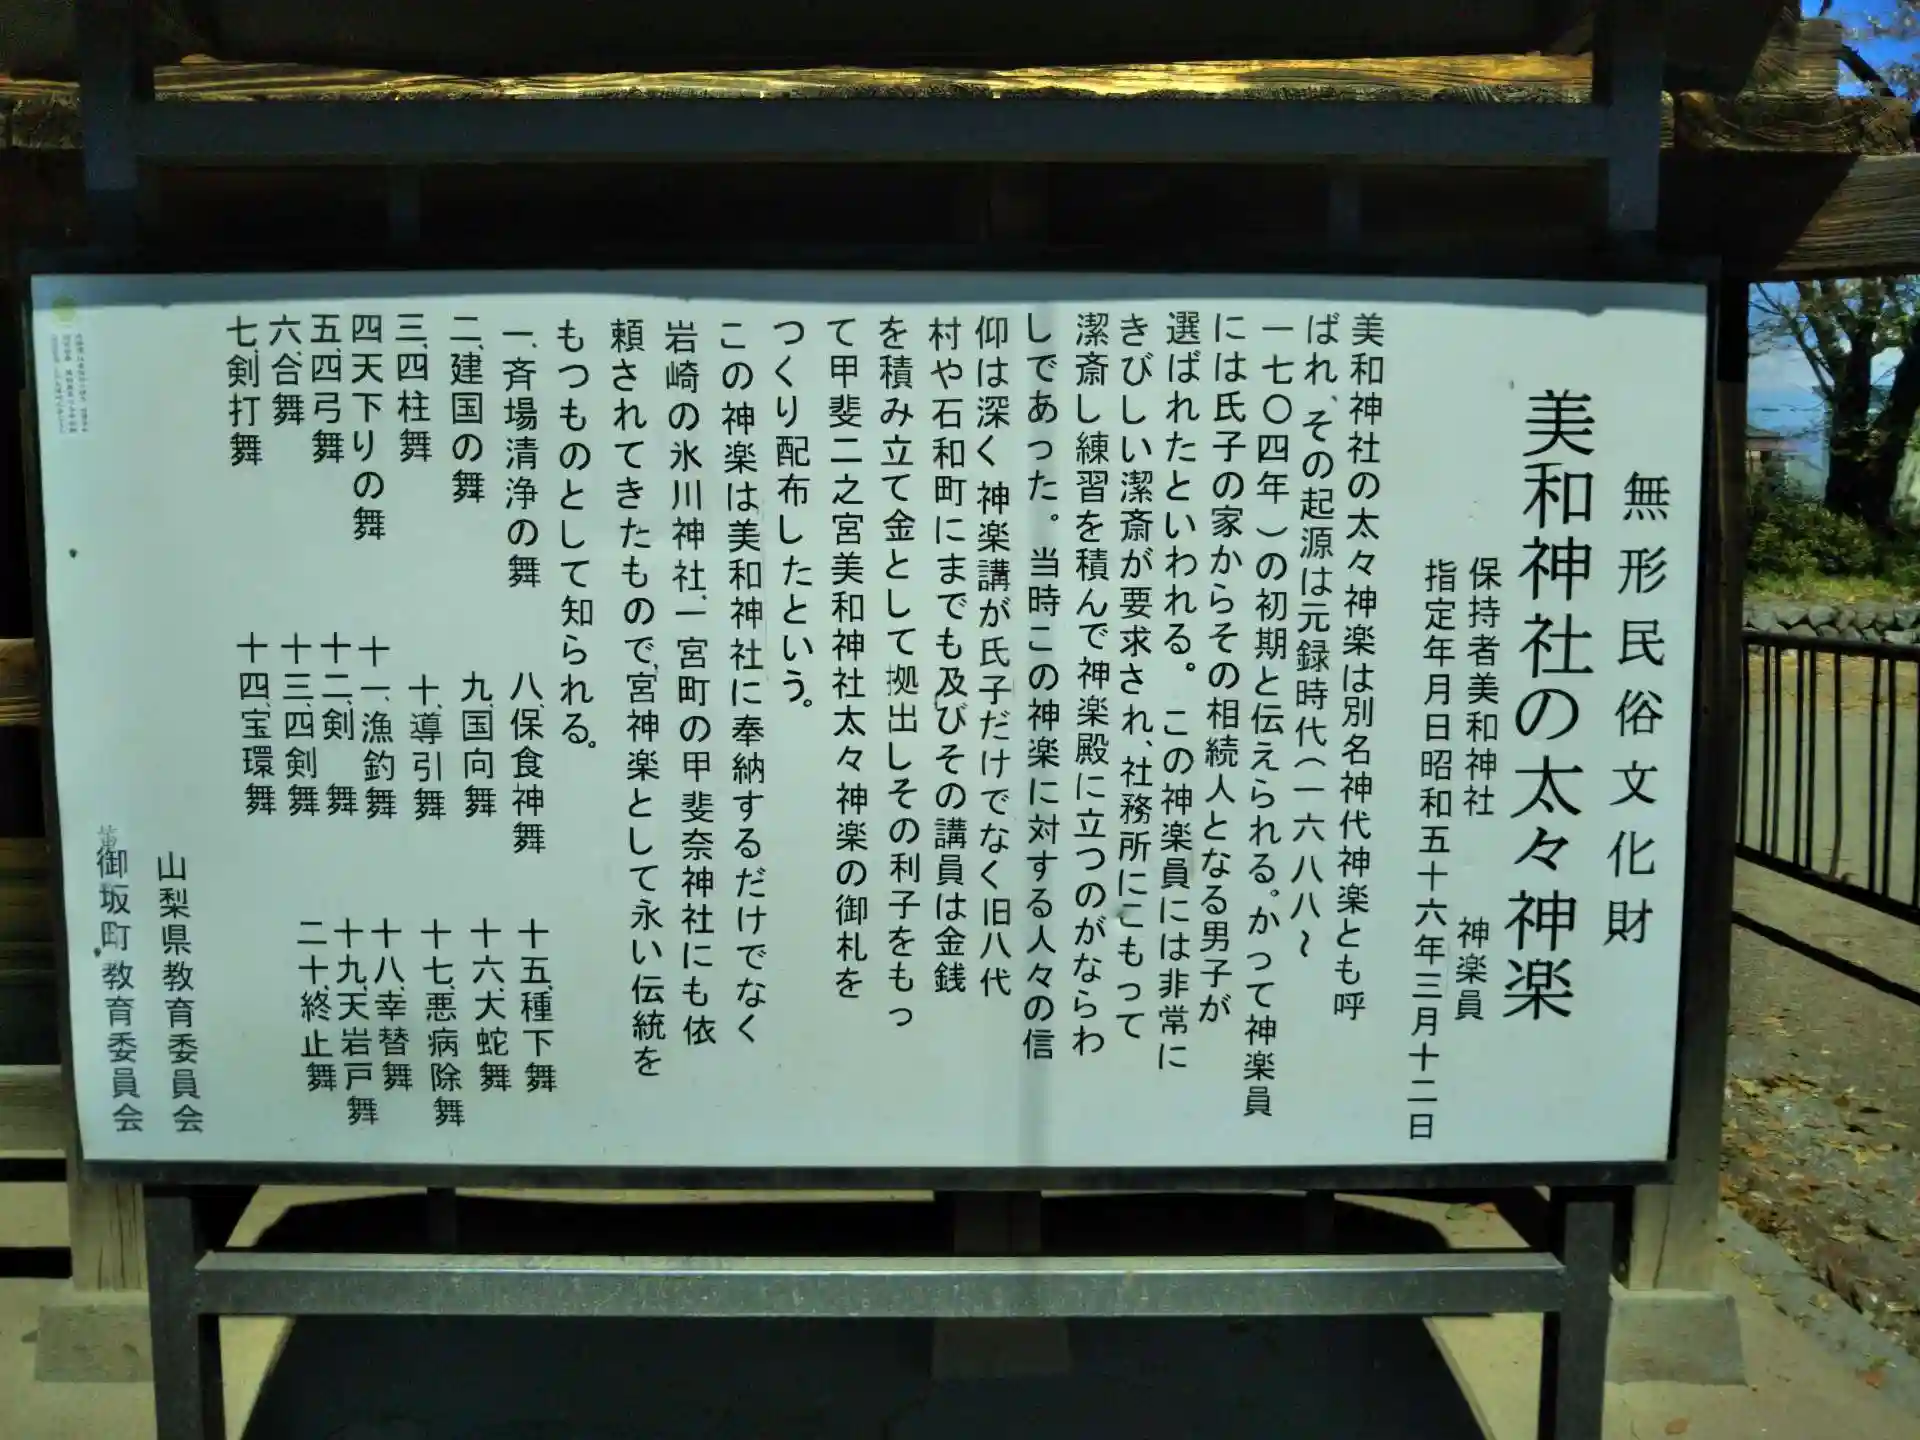 無形民俗文化財
美和神社の太々神楽
保持者美和神社 神楽員
指定年月日昭和五十六年三月十二日
美和神社の太々神楽は別名神代神楽とも呼
ばれ、その起源は元録時代（一六八八〜
一七〇四年）の初期と伝えられる。かって神楽員
には氏子の家からその相続人となる男子が
選ばれたといわれる。この神楽員には非常に
きびしい潔斎が要求され、社務所にこもって
潔斎し練習を積んで神楽殿に立つのがならわ
しであった。当時この神楽に対する人々の信
仰は深く神楽講が氏子だけでなく旧八代
村や石和町にまでも及びその講員は金銭
を積み立て金として拠出しその利子をもっ
て甲斐二之宮美和神社太々神楽の御札を
つくり配布したという。
この神楽は美和神社に奉納するだけでなく
岩崎の氷川神社、一宮町の甲斐奈神社にも依
頼されてきたもので、宮神楽として永い伝統を
もつものとして知られる。
一、斉場清浄の舞 八、保食神舞 十五、種下舞
二、建国の舞 九、国向舞 十六、大蛇舞
三、四柱舞 十、導引舞 十七、悪病除舞
四天下りの舞 十一、漁釣舞 十八、幸替舞
五、四弓舞 十二、剣 舞 十九、天岩戸舞
六、合舞 十三、四剣舞 二十、終止舞
七、剣打舞 十四、宝環舞
山梨県教育委員会
御坂町教育委員会